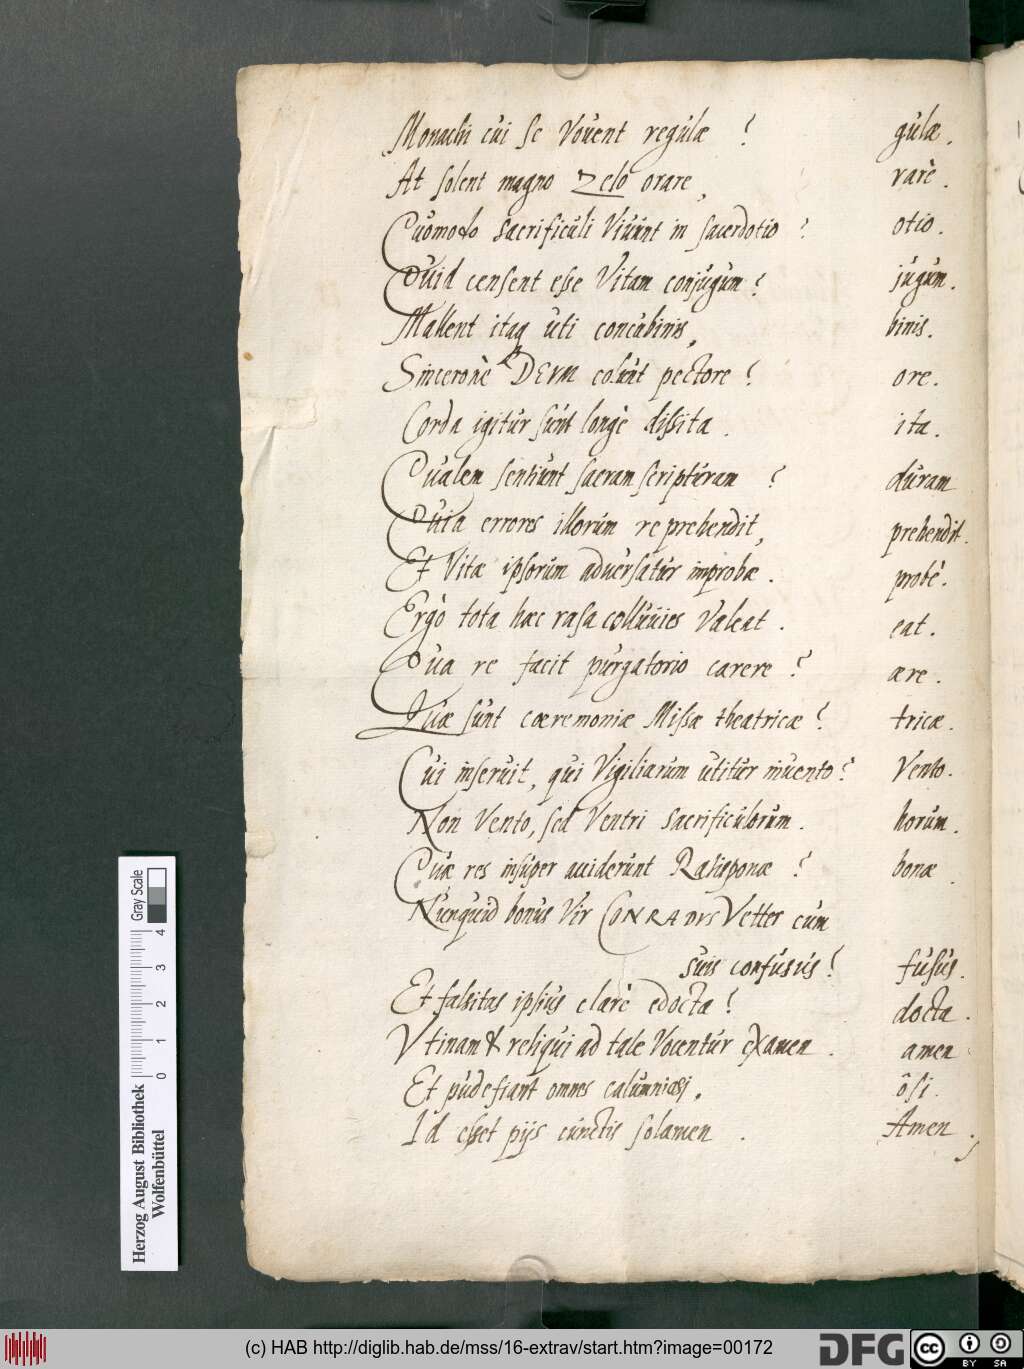 Monachi cui se vovent regulæ ? gulæ.
At solent magno zelo orare, rarè.
Quomodo sacrificuli vivunt in sacerdotio ? otio.
Quid censent esse vitam conjugum ? jugum.
Mallent itaq uti concubinis, binis.
Sinceronè DEVM colunt pectore ? ore.
Corda igitur sunt longè dissita. ita.
Qualem sentiunt sacram scripturam ? duram
Quia errores illorum reprehendit, prehendit.
Et vitæ ipsorum adversatur improbæ. probè.
Ergò tota hæc rasa colluvies valeat. eat.
Qua re facit purgatorio carere ? ære.
Quæ sunt cæremoniæ Missæ theatricæ ? tricæ.
Cui inseruit, qui vigiliarum utitur invento ? vento.
Non vento, sed ventri sacrificulorum. horum.
Quæ res insuper acciderunt Ratisponæ ? bonæ.
Nunquid bonus vir CONRADVS Vetter cum
suis confusus ? fusus.
Et falsitas ipsius clarè edocta ? docta.
Vtinam & reliqui ad tale vocentur examen. amen
Et pudefiant omnes calumniosi. ôsi.
Id esset pijs cunctis solamen. Amen.
Herzog August Bibliothek
Wolfenbüttel
0 1 2 3 4
Gray Scale
(c) HAB http://diglib.hab.de/mss/16-extrav/start.htm?image=00172
DFG
cc
BY SA